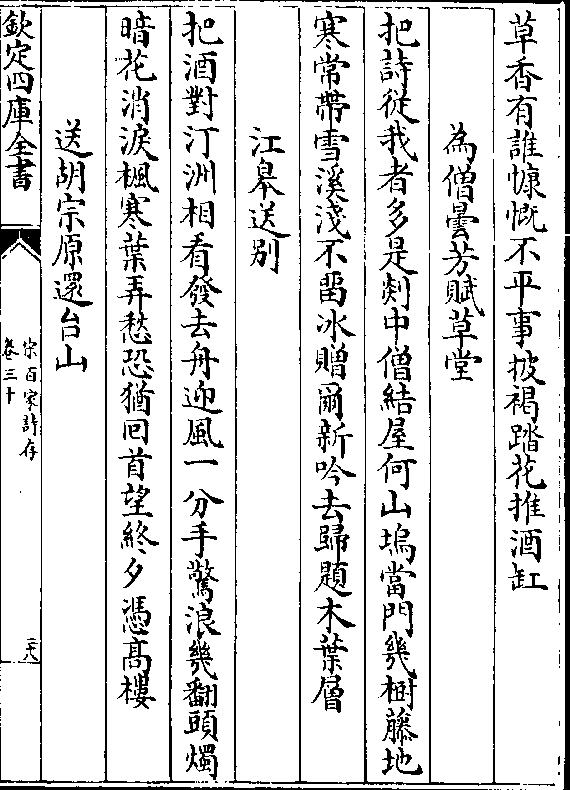 草香有誰慷慨不平事披褐踏花推酒缸
為僧曇芳賦草堂
把詩從我者多是剡中僧結屋何山塢當門幾樹藤地
寒常帶雪溪淺不留冰贈爾新吟去歸題木葉層
江皋送别
把酒對汀洲相看發去舟迎風一分手驚浪幾翻頭燭
暗花消淚楓寒葉弄愁恐猶回首望終夕憑髙樓
送胡宗原還台山
欽定四庫全書
宋百家詩存
卷三十
二六